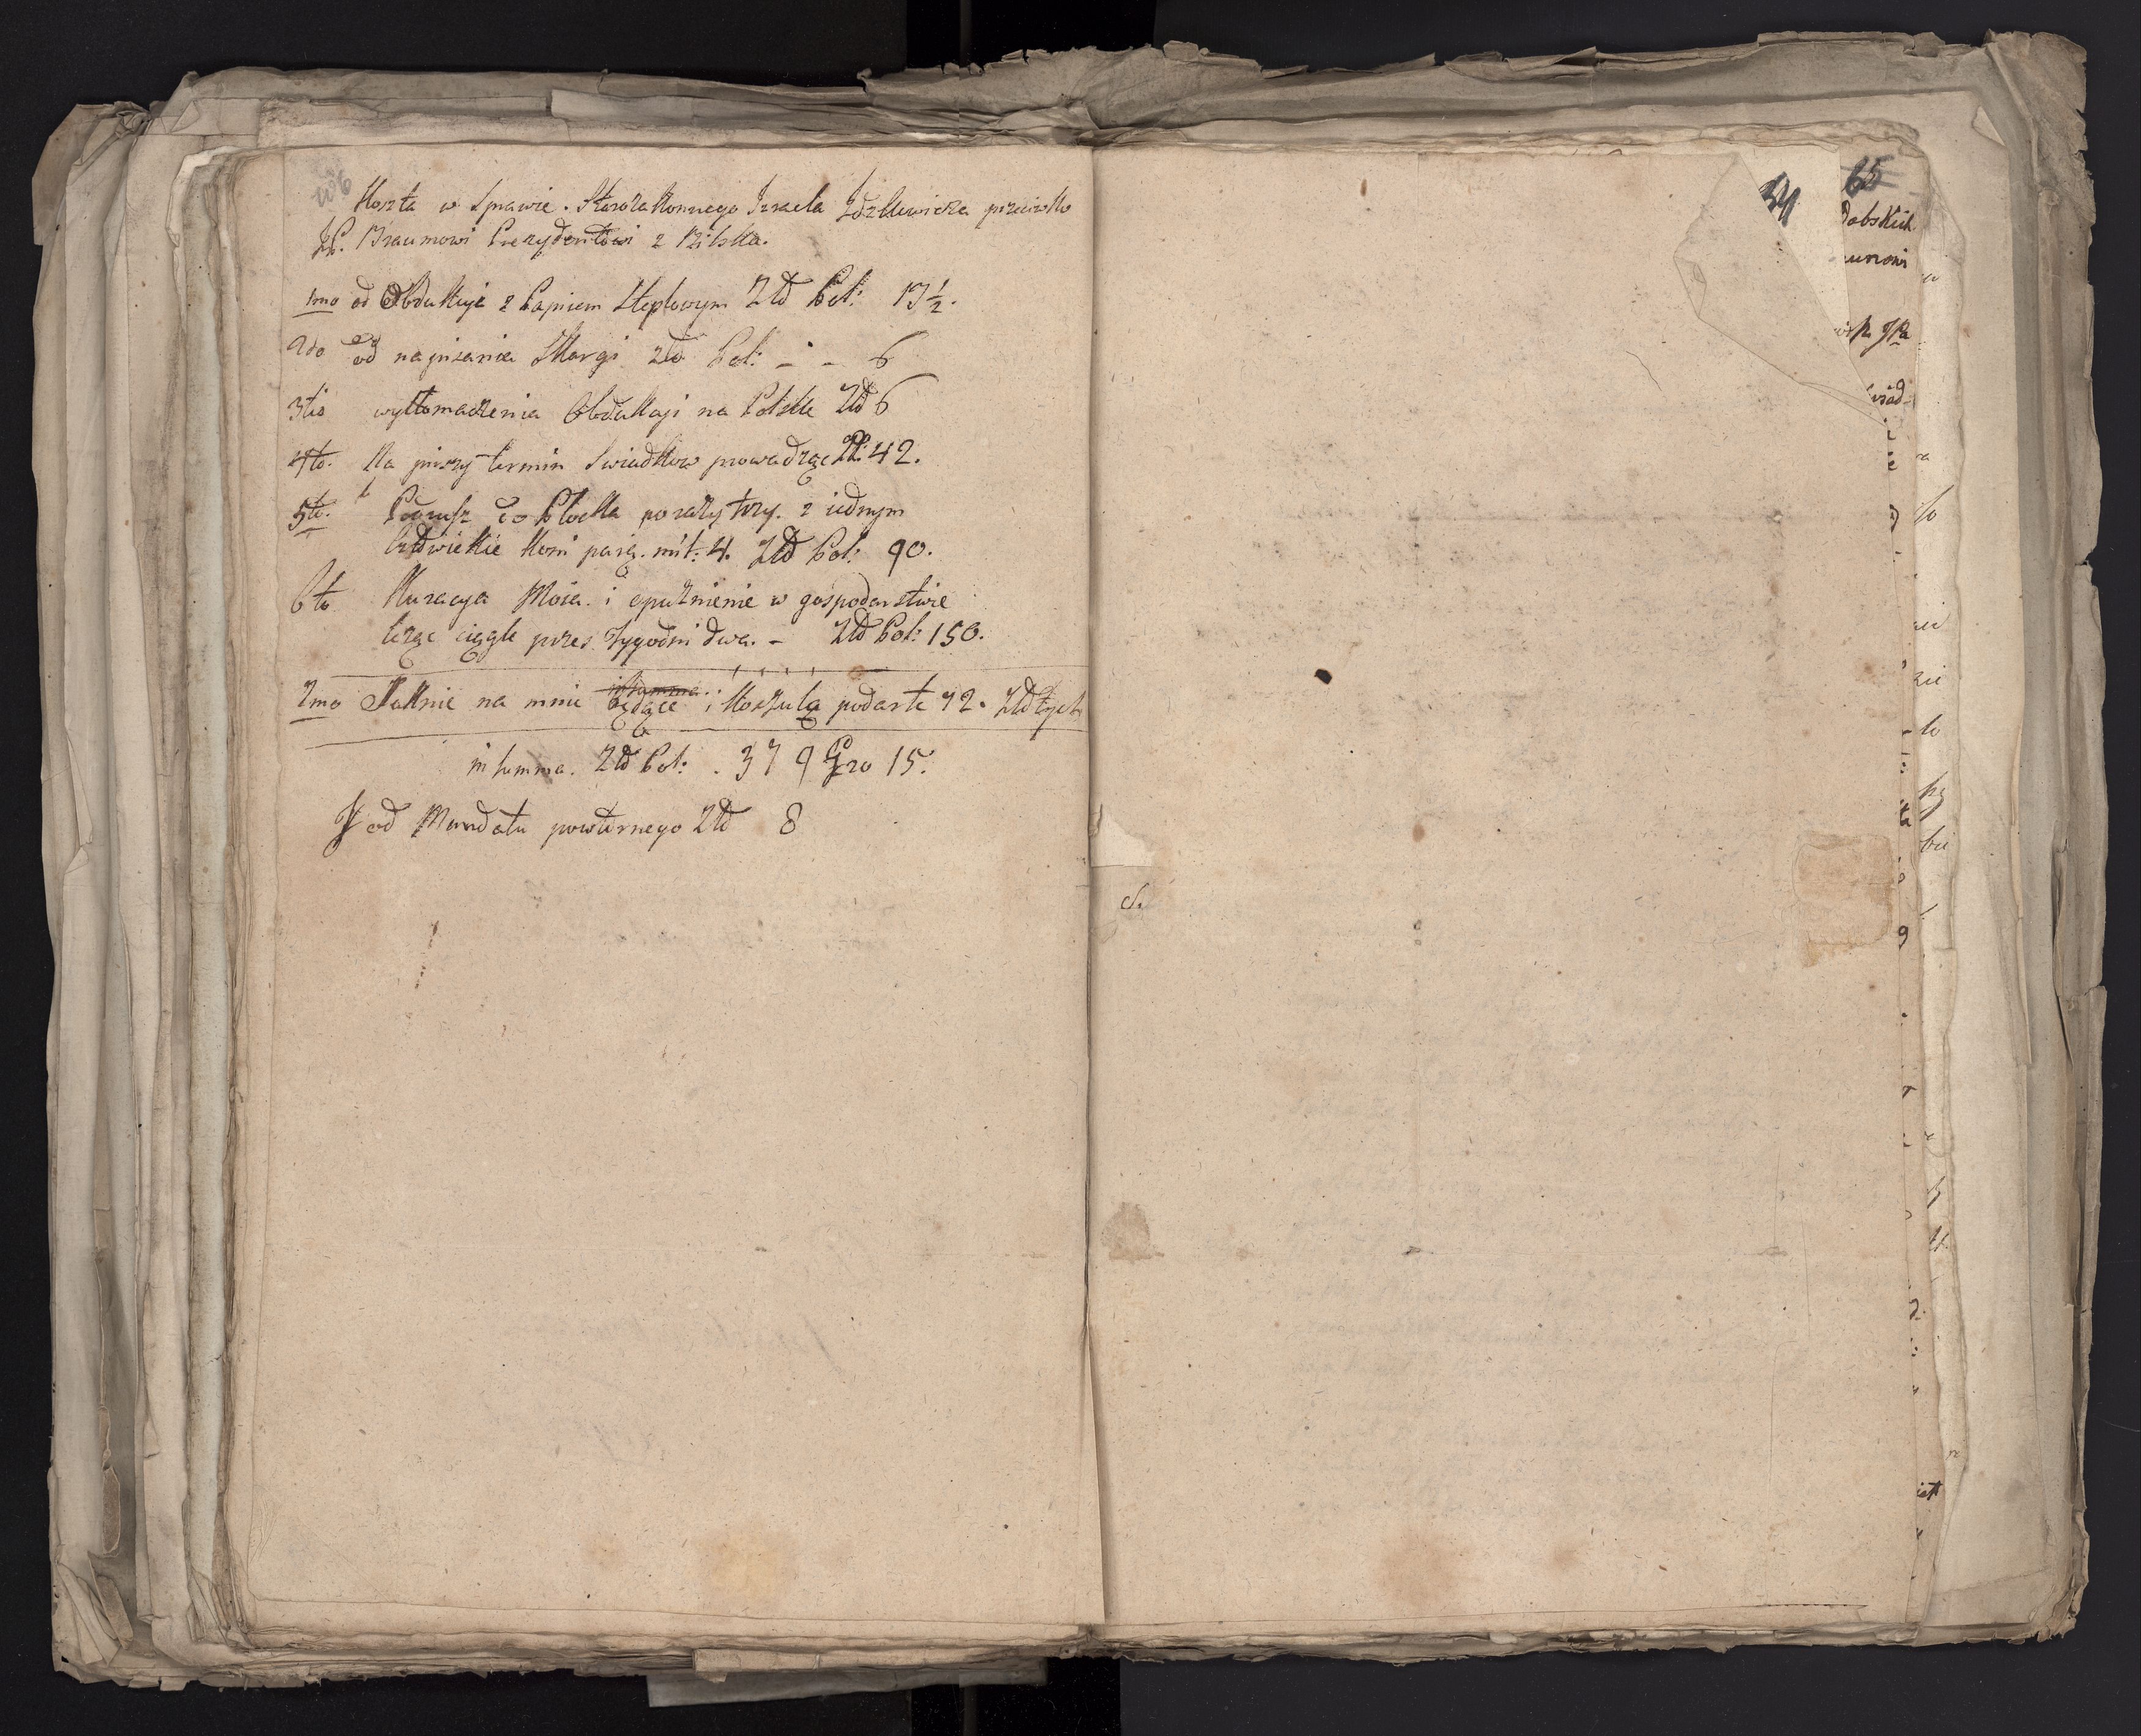 Koszta w Sprawie. Starozakonnego Izraela Idzkiewicza przeciwko
JP. Braumowi Prezydentowi z
1mo od Obdukcyi z Papierem Steplowym Złł Pol: 17½.
2do od napisania Skargi złł Pol: - - 6
3tio wytłomaczenia Obdukcyi na Polskie Złł 6
4to. Na pirszy termin Swiadkow prowadząc Zł: 42.
5to. Podrusz do Płocka po razy trzy. z iednym
Człowiekie koni parą. mil. 4. Złł Pol: 90.
6to Kuracya Moia. i opuznienie w gospodarstwie
leżąc ciągle przes tygodni dwa. - Złł Pol: 150.
7mo Suknie na mnie będące i Koszulą podarte 72. Złłtych
in summa. Złł Pol: . 379 Gro 15.
J od Mandatu powturnego Złł 8
34
65
dobskich
d.